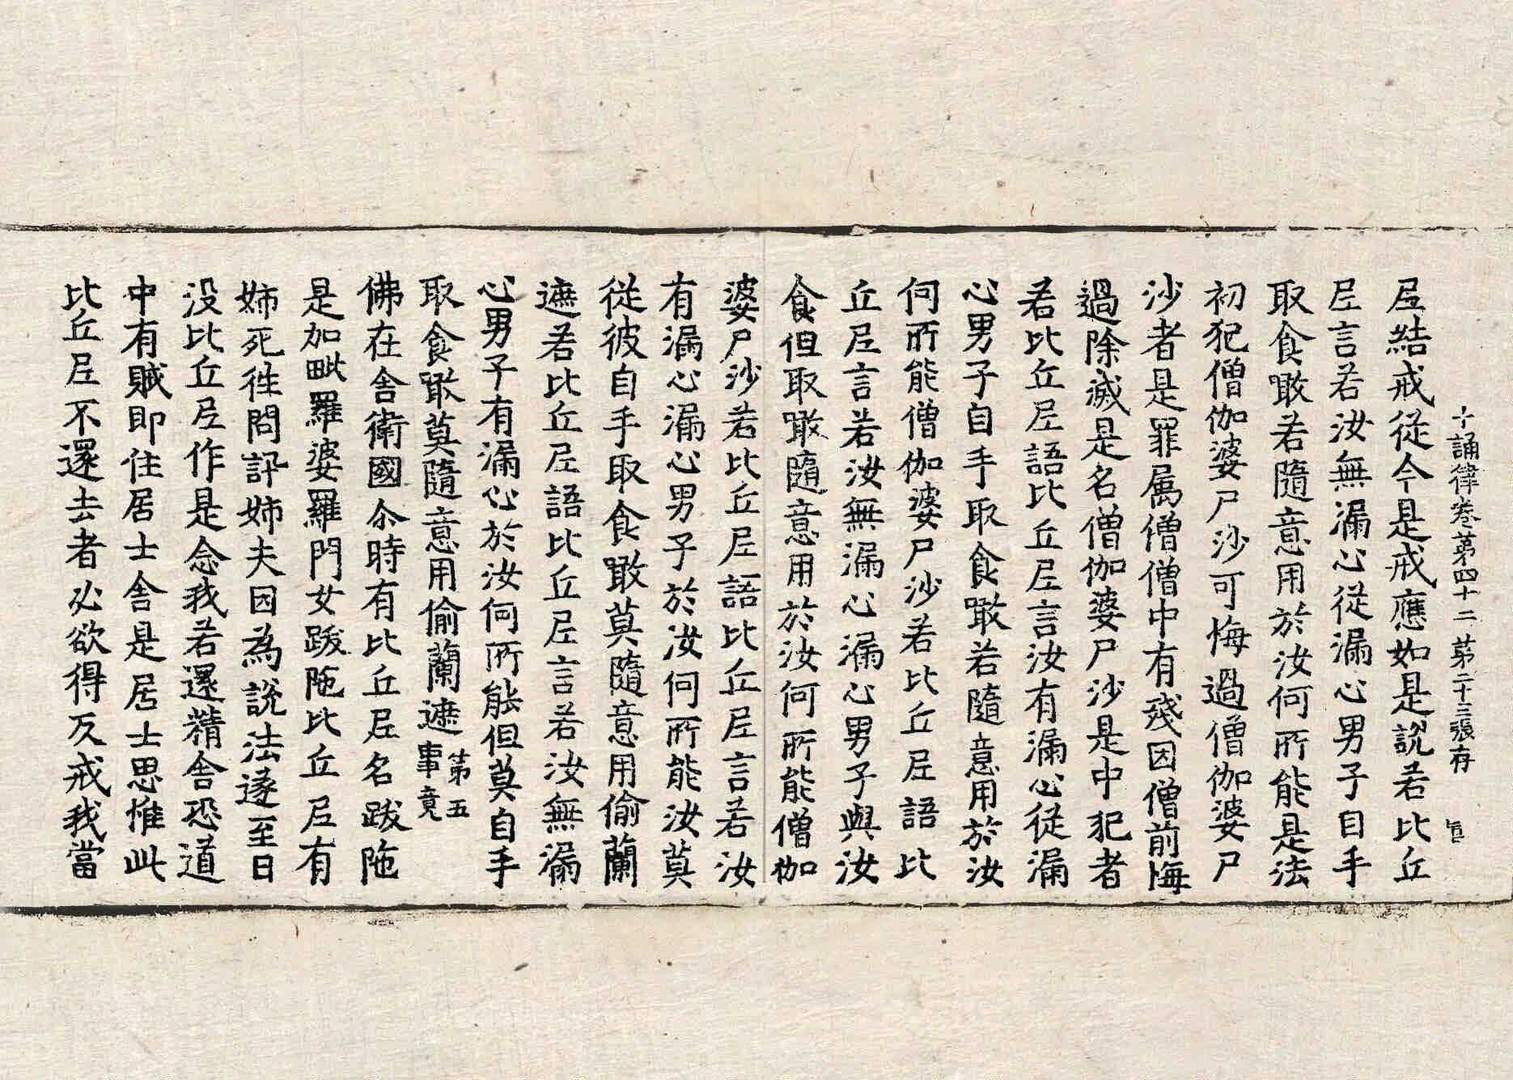 十誦律卷第四十二 第二十三張存
尼結戒從今是戒應如是說若比丘
尼言若汝無漏心從漏心男子自手
取食噉若隨意用於汝何所能是法
初犯僧伽婆尸沙可悔過僧伽婆尸
沙者是罪属僧僧中有殘因僧前悔
過除滅是名僧伽婆尸沙是中犯者
若比丘尼語比丘尼言汝有漏心從漏
心男子自手取食噉若隨意用於汝
何所能僧伽婆尸沙若比丘尼語比
丘尼言若汝無漏心漏心男子與汝
食但取噉隨意用於汝何所能僧伽
婆尸沙若比丘尼語比丘尼言若汝
有漏心漏心男子於汝何所能汝莫
從彼自手取食噉莫隨意用偷蘭
遮若比丘尼語比丘尼言若汝無漏
心男子有漏心於汝何所能但莫自手
取食噉莫隨意用偷蘭遮第五事竟
佛在舍衛國尒時有比丘尼名跋陁
是加毗羅婆羅門女跋陁比丘尼有
姊死徃問訊姊夫因為說法遂至日
没比丘尼作是念我若還精舍恐道
中有賊即住居士舍是居士思惟此
比丘尼不還去者必欲得反戒我當